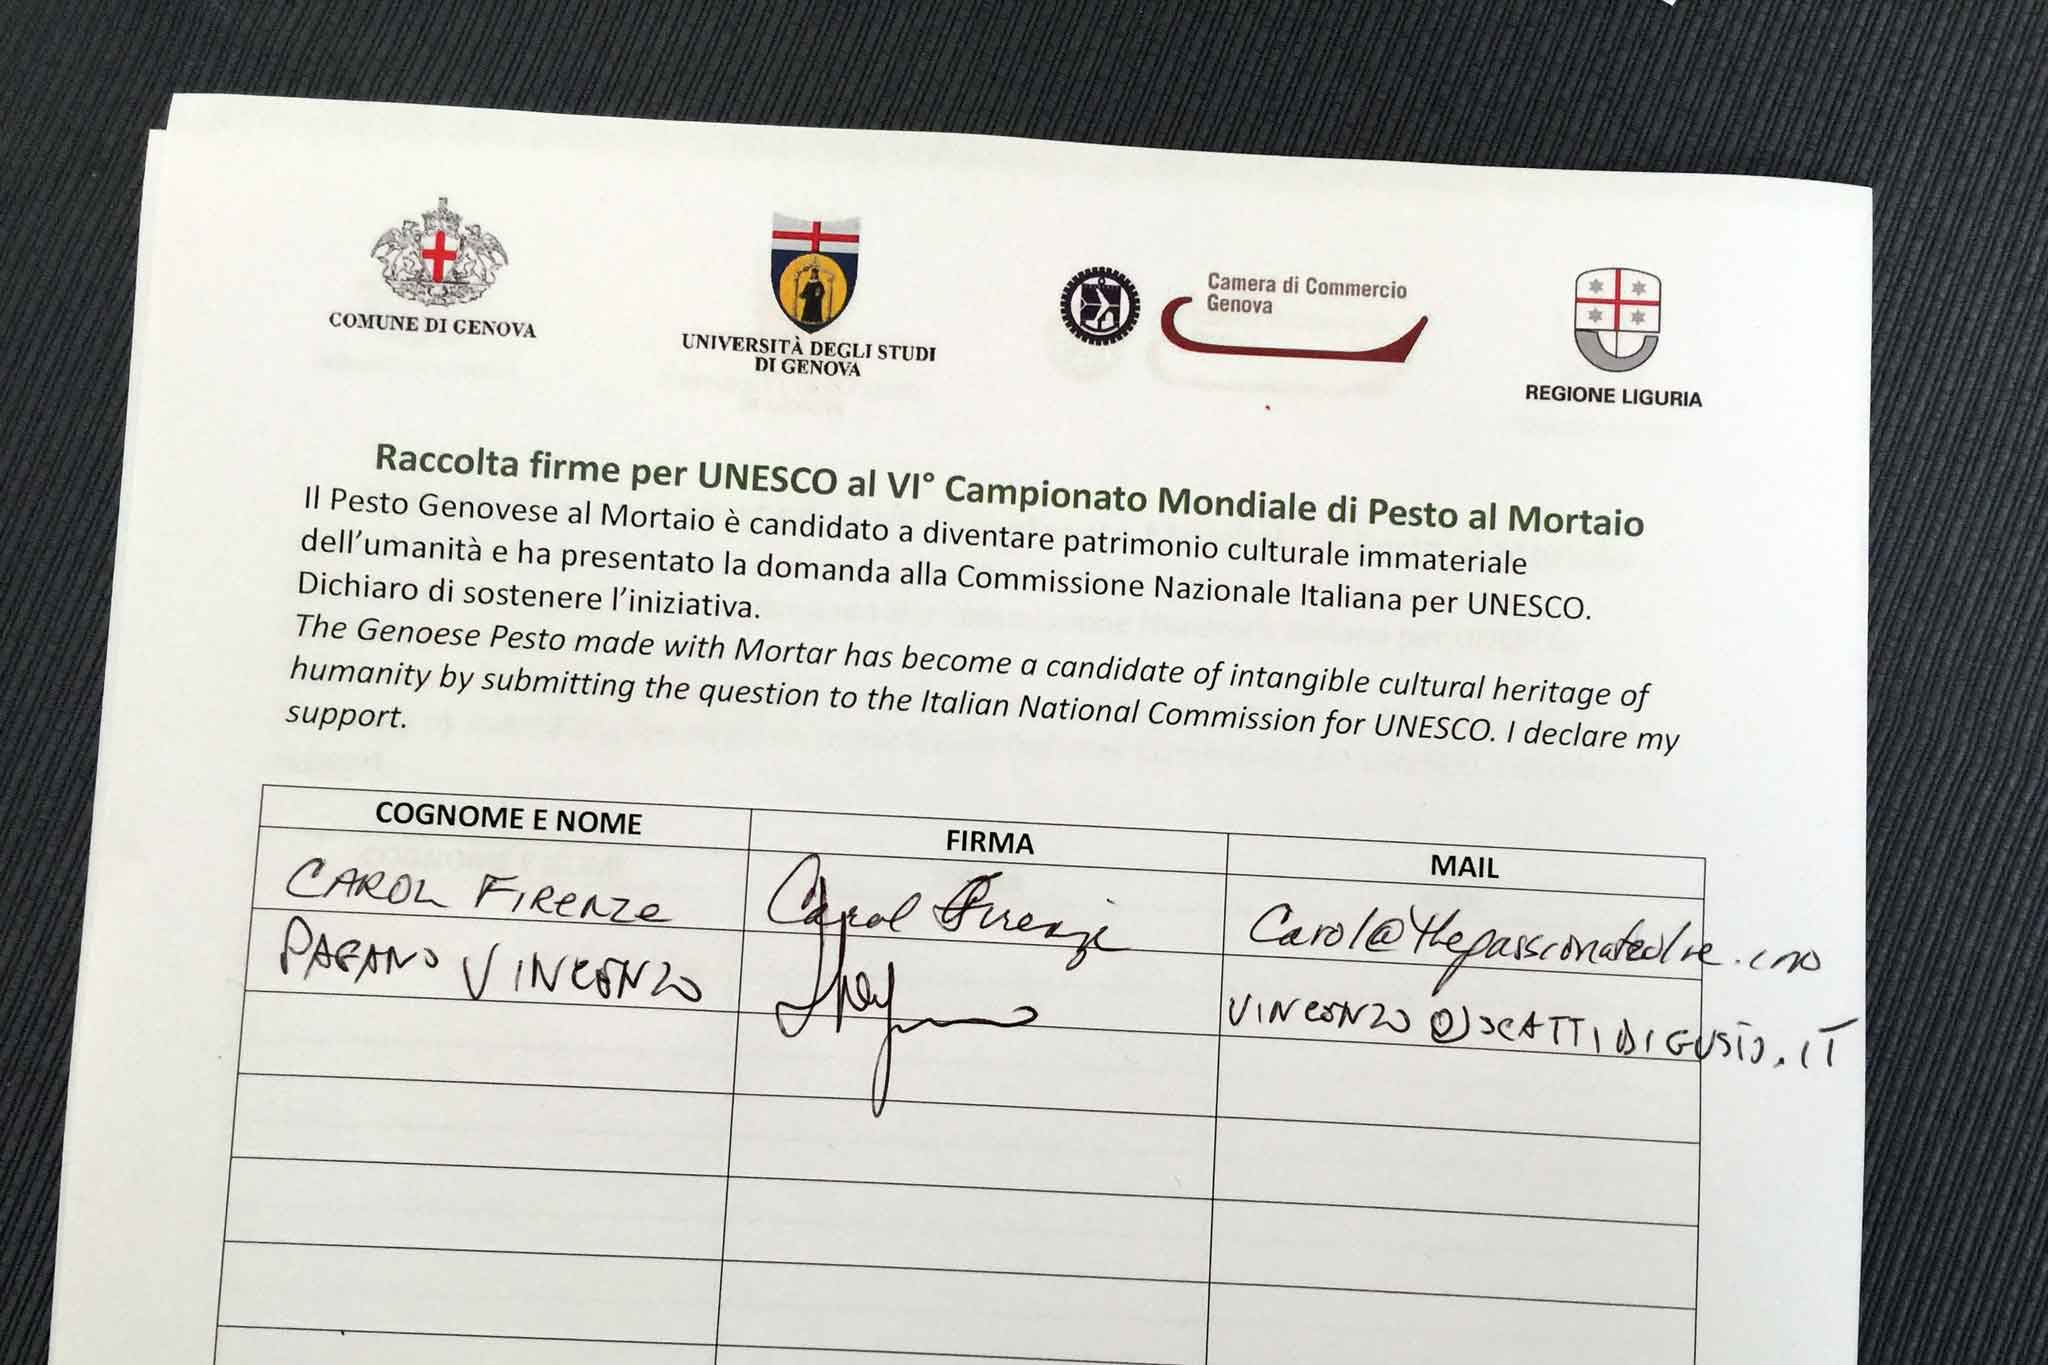 COMUNE DI GENOVA
UNIVERSITÀ DEGLI STUDI
DI GENOVA
Camera di Commercio
Genova
REGIONE LIGURIA
Raccolta firme per UNESCO al VI° Campionato Mondiale di Pesto al Mortaio
Il Pesto Genovese al Mortaio è candidato a diventare patrimonio culturale immateriale
dell'umanità e ha presentato la domanda alla Commissione Nazionale Italiana per UNESCO.
Dichiaro di sostenere l'iniziativa.
The Genoese Pesto made with Mortar has become a candidate of intangible cultural heritage of
humanity by submitting the question to the Italian National Commission for UNESCO. I declare my
support.
COGNOME E NOME FIRMA MAIL
CAROL FIRENZE Carol Firenze Carol@thepassionateolive.com
PAGANO VINCENZO VINCENZO@SCATTIDIGUSTO.IT